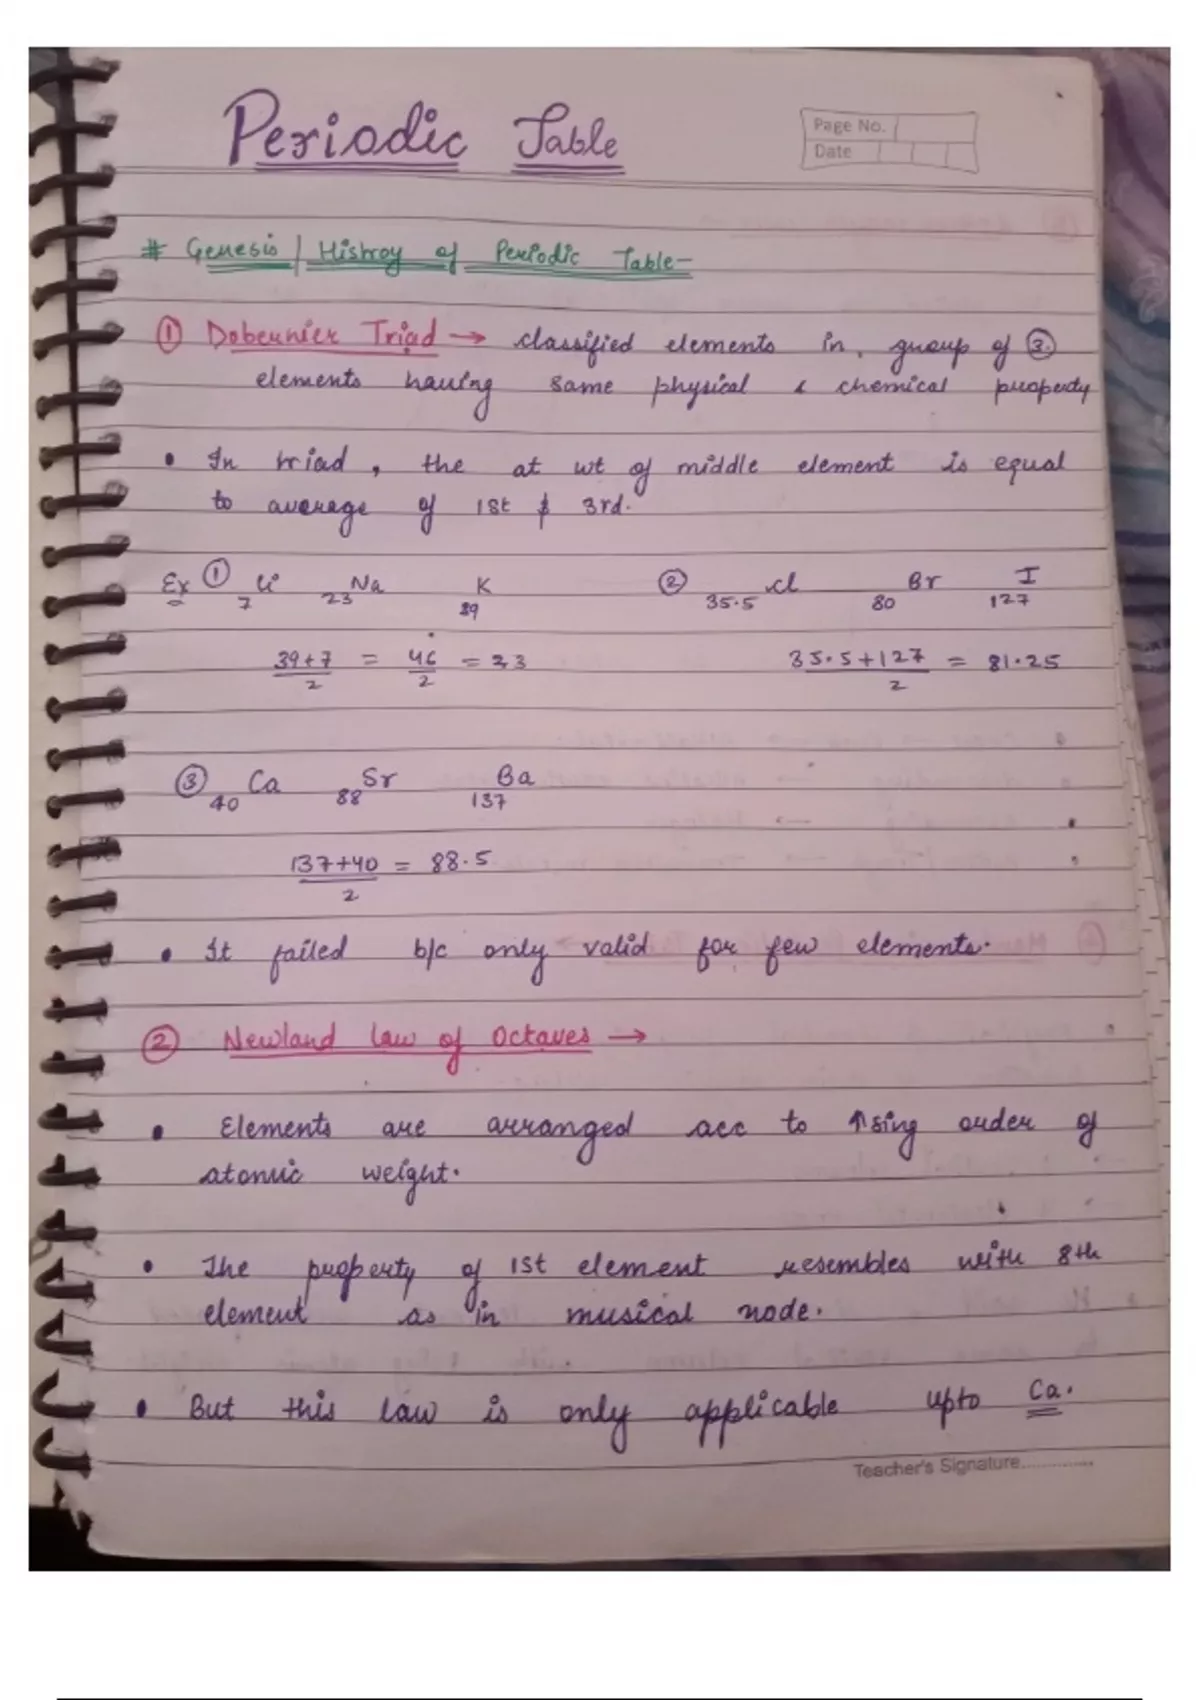 Periodic Table
Page No.
Date
# Genesis / Histroy of Periodic Table-
① Dobeunier Triad → classified elements in group of ③
elements having same physical & chemical property
• In triad, the at wt of middle element is equal
to average of 1st & 3rd.
Ex ① Li Na K ② Cl Br I
7 23 39 35.5 80 127
39+7 = 46 = 23 35.5+127 = 81.25
2 2 2
③ 40 Ca 88 Sr 137 Ba
137+40 = 88.5
2
• It failed b/c only valid for few elements.
② Newland law of Octaves →
• Elements are arranged acc to ↑sing order of
atomic weight.
• The property of 1st element resembles with 8th
element as in musical node.
• But this law is only applicable upto Ca.
Teacher's Signature..............